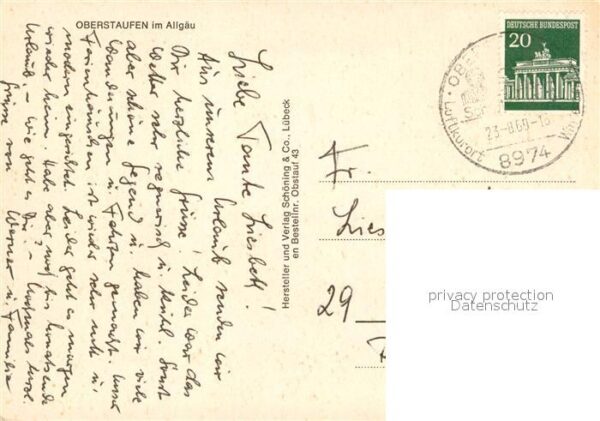 OBERSTAUFEN im Allgäu
Liebe Tante Liesbeth!
Aus unserem Urlaub senden wir
Dir herzliche Grüsse! Leider war das
Wetter sehr regnerisch u. kühl. Sonst
aber schöne Gegend u. haben wir viele
Wanderungen u. Fahrten gemacht. Unser
Ferienhäuschen ist wieder sehr nett u.
modern eingerichtet. Leider geht es morgen
wieder heim. Habe aber noch bis Monatsende
Urlaub - wie geht es Dir? - Nochmals herzl.
Grüsse von Werner u. Familie
Hersteller und Verlag Schöning & Co., Lübeck
en Bestellnr. Obstauf 43
DEUTSCHE BUNDESPOST
20
OBE
Luftkurort
8974
Fr.
Lies
29
privacy protection
Datenschutz